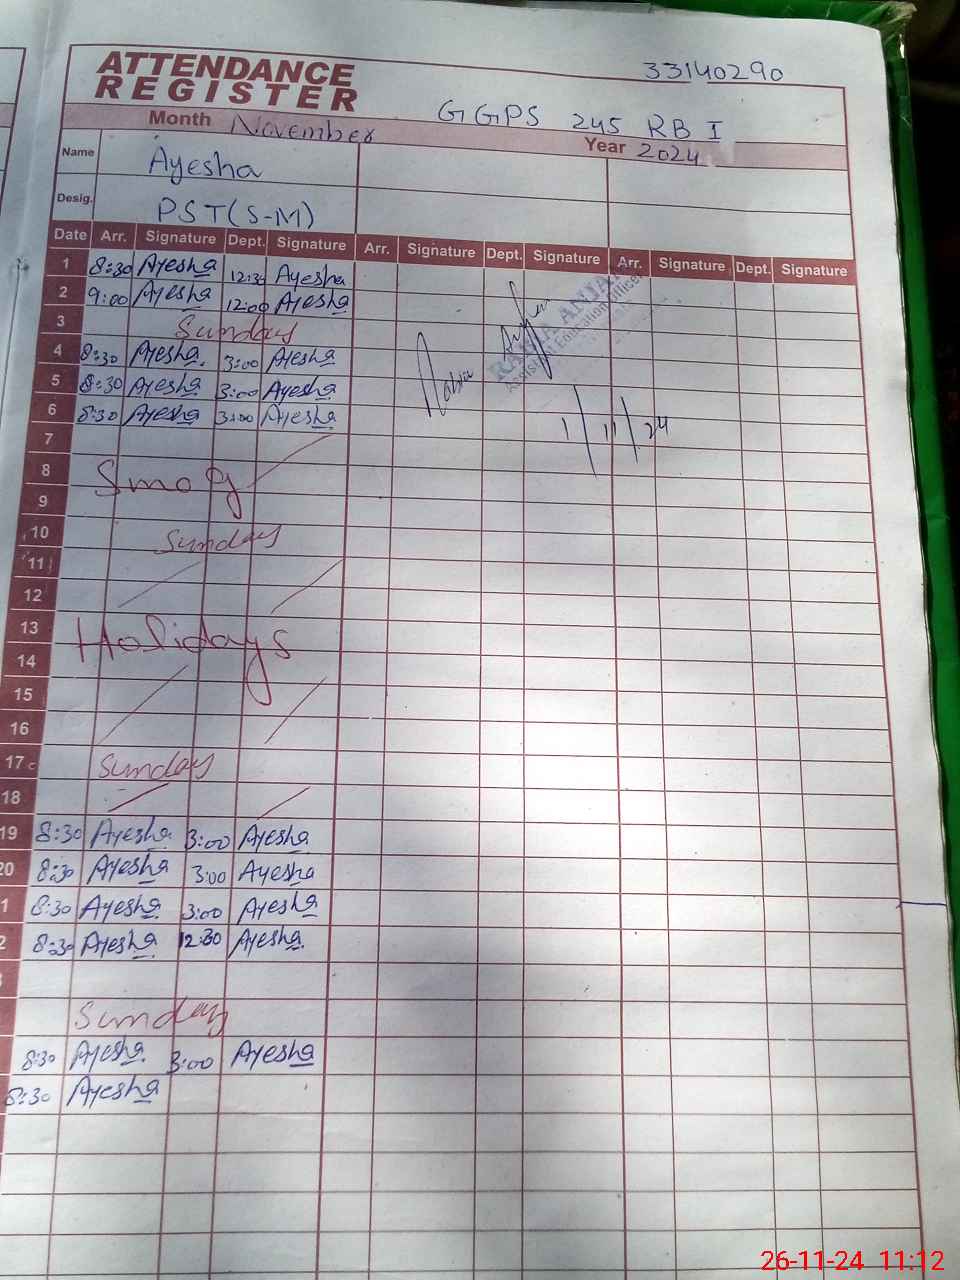 33140290
ATTENDANCE
REGISTER
GGPS 245 RB I
Month November Year 2024
Name Ayesha
Desig. PST(S-M)
Date Arr. Signature Dept. Signature Arr. Signature Dept. Signature Arr. Signature Dept. Signature
1 8:30 Ayesha 12:30 Ayesha
2 9:00 Ayesha 12:00 Ayesha
3 Sunday
4 8:30 Ayesha 3:00 Ayesha
5 8:30 Ayesha 3:00 Ayesha
6 8:30 Ayesha 3:00 Ayesha
Education Officer
1/11/24
7
8 Smog
9
10 Sunday
11
12
13 Holidays
14
15
16
17 Sunday
18
19 8:30 Ayesha 3:00 Ayesha
20 8:30 Ayesha 3:00 Ayesha
1 8:30 Ayesha 3:00 Ayesha
2 8:30 Ayesha 12:30 Ayesha
Sunday
8:30 Ayesha 3:00 Ayesha
8:30 Ayesha
26-11-24 11:12